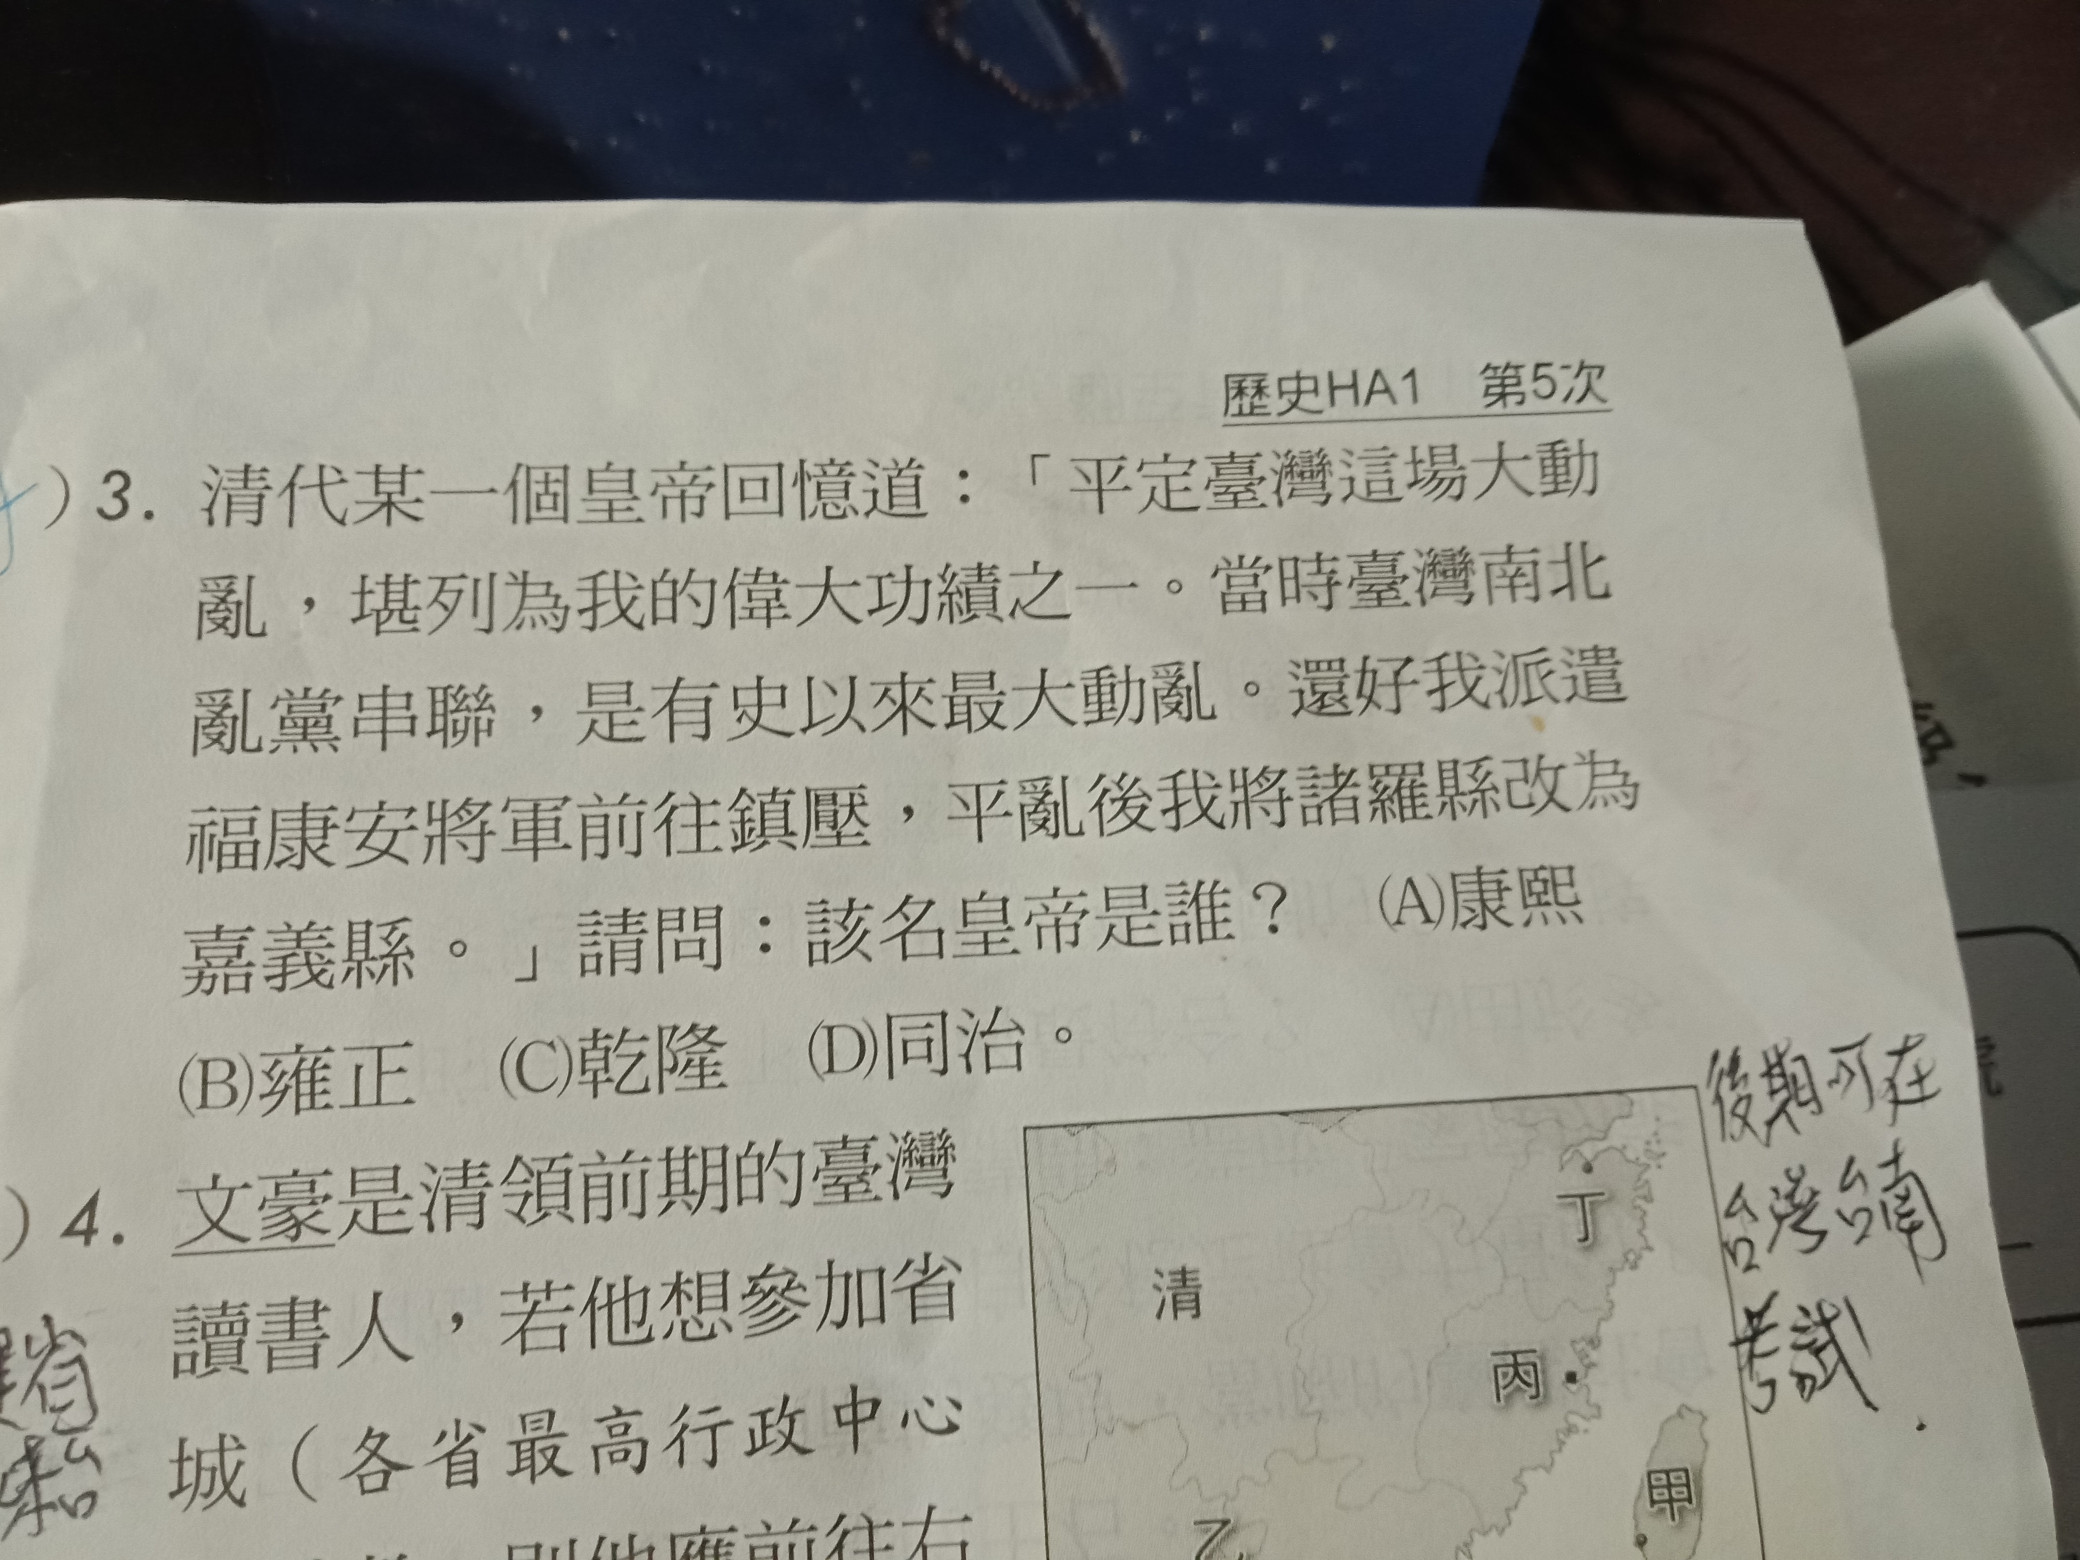 歷史HA1 第5次
)3. 清代某一個皇帝回憶道：「平定臺灣這場大動
亂，堪列為我的偉大功績之一。當時臺灣南北
亂黨串聯，是有史以來最大動亂。還好我派遣
福康安將軍前往鎮壓，平亂後我將諸羅縣改為
嘉義縣。」請問：該名皇帝是誰？ (A)康熙
(B)雍正 (C)乾隆 (D)同治。
)4. 文豪是清領前期的臺灣
讀書人，若他想參加省
城（各省最高行政中心
則他應前往右
丁
清
丙
甲
乙
後期可在
台灣台南
考試
省